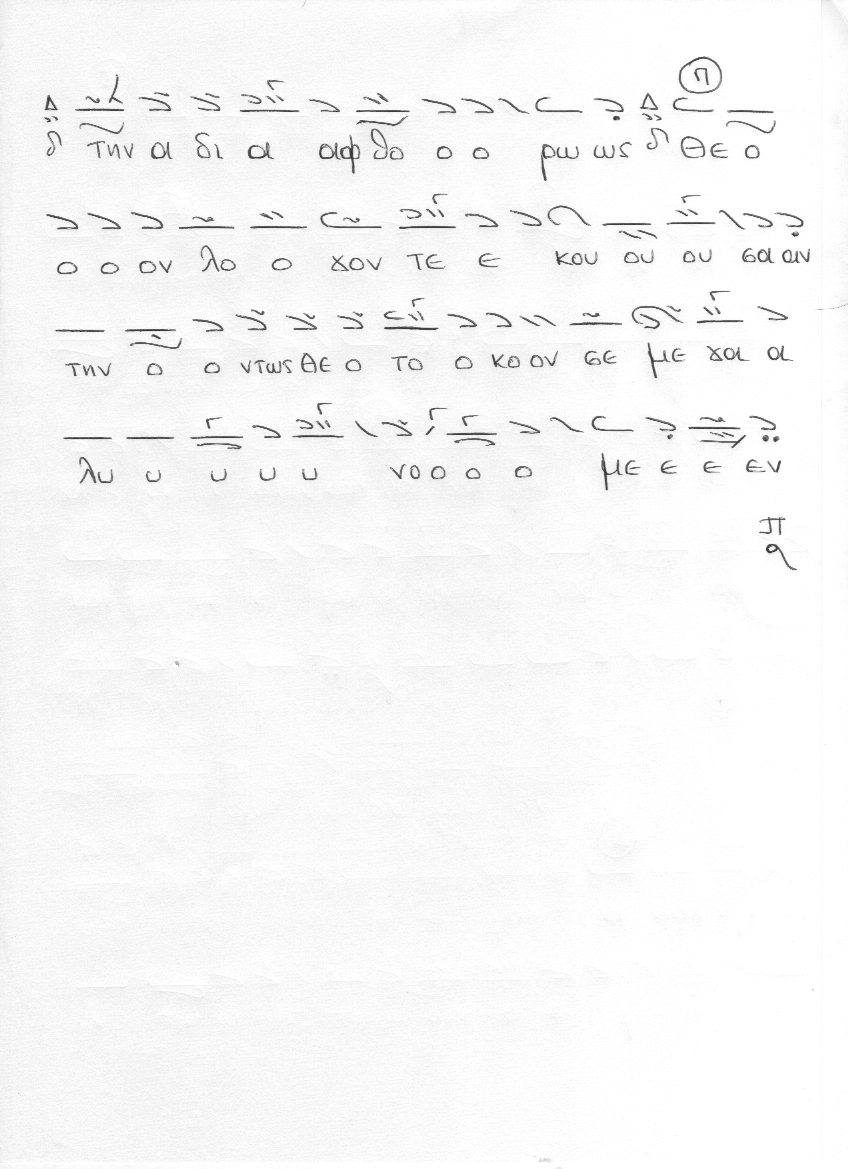 η
Δ Δ
δ την α δι α αφ θο ο ο ρω ως δ θε ο
ο ο ον λο ο γον τε ε κου ου ου σα αν
την ο ο ντως θε ο το ο κο ον σε με γα α
λυ υ υ υ υ νο ο ο ο με ε ε εν
π
q